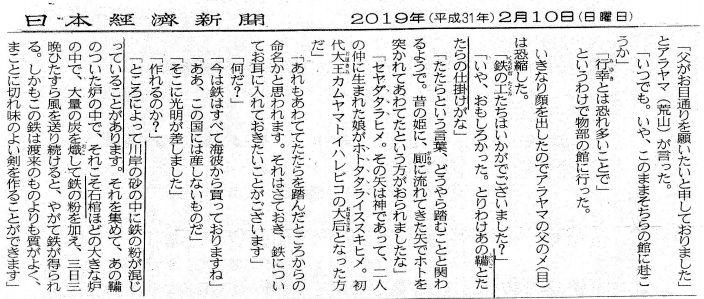 日本經濟新聞　2019年(平成31年)2月10日(日曜日)
「父がお目通りを願いたいと申しておりました」
とアラヤマ（荒山）が言った。
「いつでも。いや、このままそちらの館に赴こ
うか」
「行幸とは恐れ多いことで」
というわけで物部の館に行った。
いきなり顔を出したのでアラヤマの父のメ（目）
は恐縮した。
「鉄の工たちはいかがでございました？」
「いや、おもしろかった。とりわけあの鞴とた
たらの仕掛けがな」
「たたらという言葉、どうやら踏むことと関わ
るようで。昔の姫に、厠に流れてきた矢でホトを
突かれてあわてたという方がおられましたな」
「セヤダタラヒメ。その矢は神であって、二人
の仲に生まれた娘がホトタタライススキヒメ。初
代大王カムヤマトイハレビコの大后となった方
だ」
「あれもあわててたたらを踏んだところからの
命名かと思われます。それはさておき、鉄につい
てお耳に入れておきたいことがございます」
「何だ？」
「今は鉄はすべて海彼から買っておりますね」
「ああ、この国には産しないものだ」
「そこに光明が差しました」
「作れるのか？」
「ところによって川岸の砂の中に鉄の粉が混じ
っていることがあります。それを集めて、あの鞴
のついた炉の中で、それこそ石棺ほどの大きな炉
の中で、大量の炭を熾して鉄の粉を加え、三日三
晩ひたすら風を送り続けると、やがて鉄が得られ
る。しかもこの鉄は渡来のものよりも質がよく、
まことに切れ味のよい剣を作ることができます」